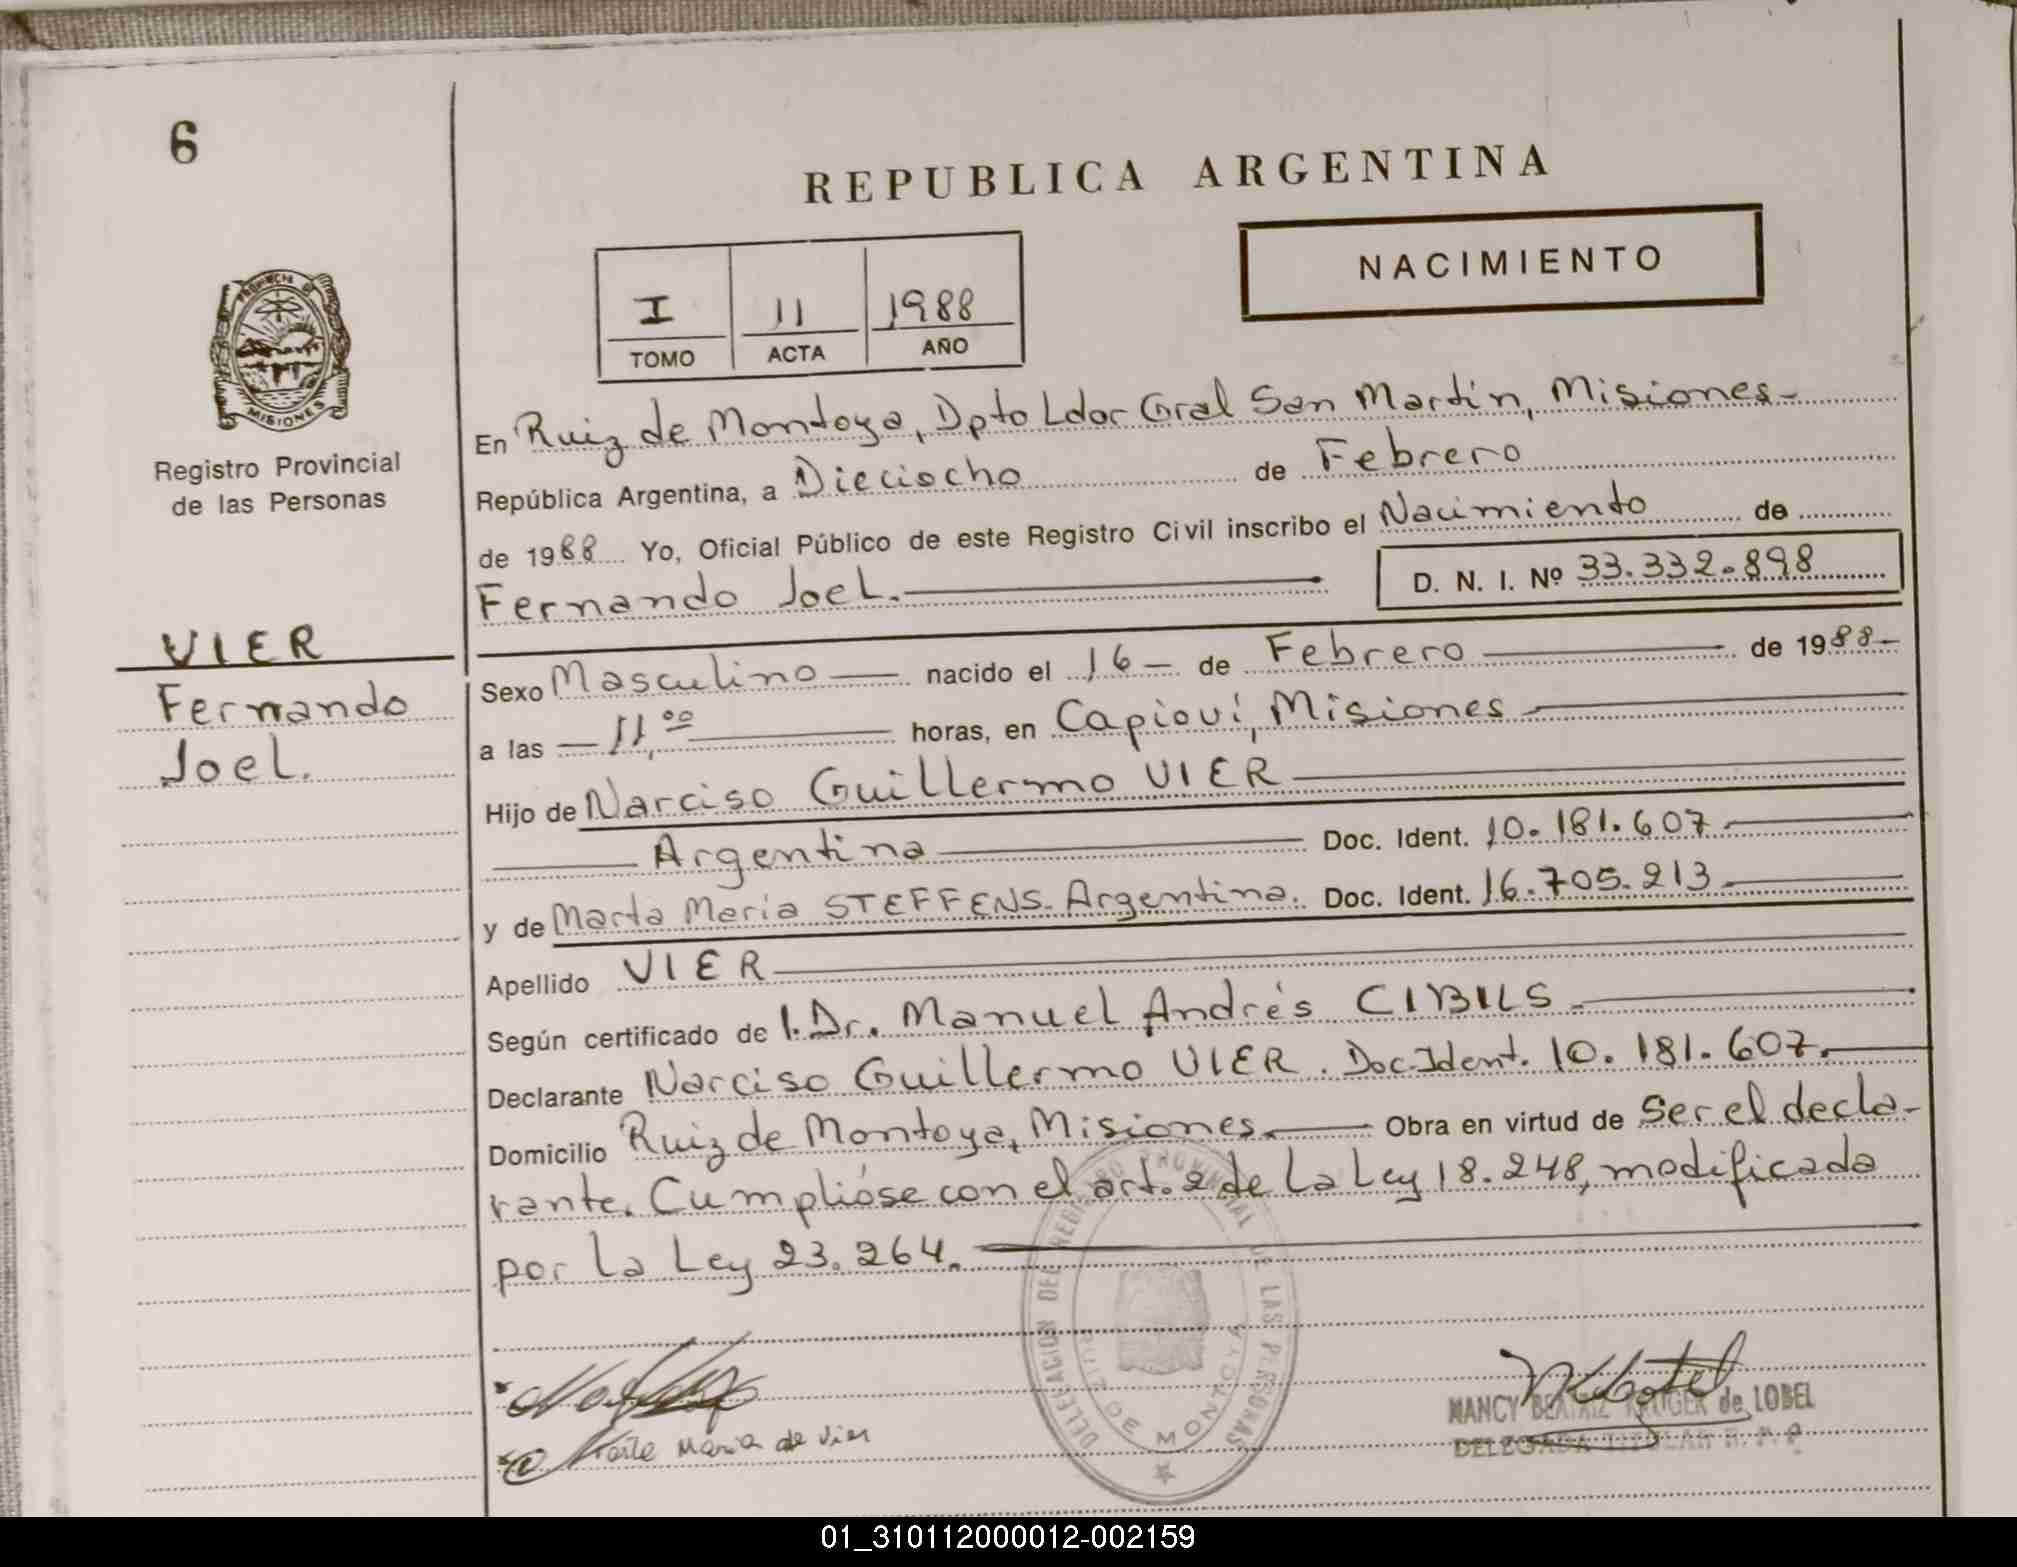 6
REPUBLICA ARGENTINA
NACIMIENTO
I 11 1988
TOMO ACTA AÑO
PROVINCIA DE
MISIONES
Registro Provincial
de las Personas
VIER
Fernando
Joel.
En Ruiz de Montoya, Dpto Ldor Gral San Martín, Misiones-
República Argentina, a Dieciocho de Febrero
de 1988 Yo, Oficial Público de este Registro Civil inscribo el Nacimiento de
Fernando Joel. D. N. I. Nº 33.332.898
Sexo Masculino nacido el 16 - de Febrero de 1988-
a las - 11,00 horas, en Capioví, Misiones
Hijo de Narciso Guillermo VIER
Argentina Doc. Ident. 10.181.607
y de Marta María STEFFENS. Argentina. Doc. Ident. 16.705.213
Apellido VIER
Según certificado de l. Dr. Manuel Andrés CIBILS
Declarante Narciso Guillermo VIER. Doc. Ident. 10.181.607.
Domicilio Ruiz de Montoya, Misiones. Obra en virtud de Ser el decla-
rante. Cumplióse con el art. 2 de La Ley 18.248, modificada
por La Ley 23.264.
DELEGACION DEL REGISTRO PROVINCIAL DE LAS PERSONAS
RUIZ DE MONTOYA
Maria de Vier
NANCY BEATRIZ KRUGER de LOBEL
DELEGADA TITULAR R. P. P.
01_310112000012-002159